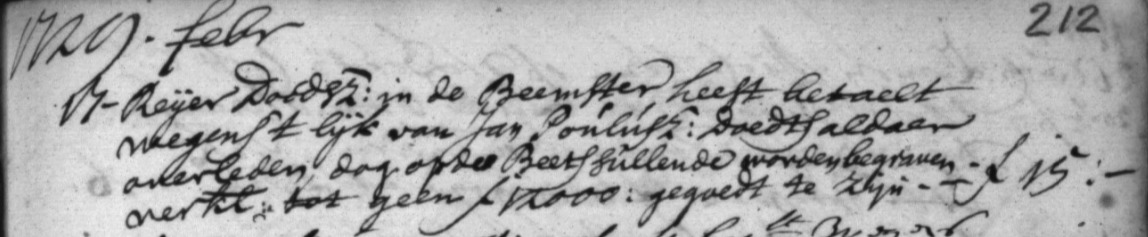 1729. febr 212
17- Reijer Doedsz: in de Beemster heeft betaelt
wegens t lijk van Jan Poulusz: Doedts aldaer
overleden, dog op de Beets sullende worden begraven - f 15:-
verkl: tot geen f 12000: gegoedt te zijn --